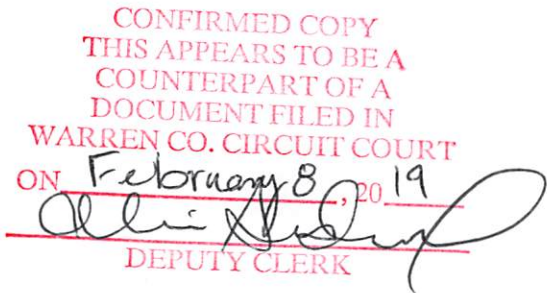 CONFIRMED COPY
THIS APPEARS TO BE A
COUNTERPART OF A
DOCUMENT FILED IN
WARREN CO. CIRCUIT COURT
ON February 8, 20 19
DEPUTY CLERK